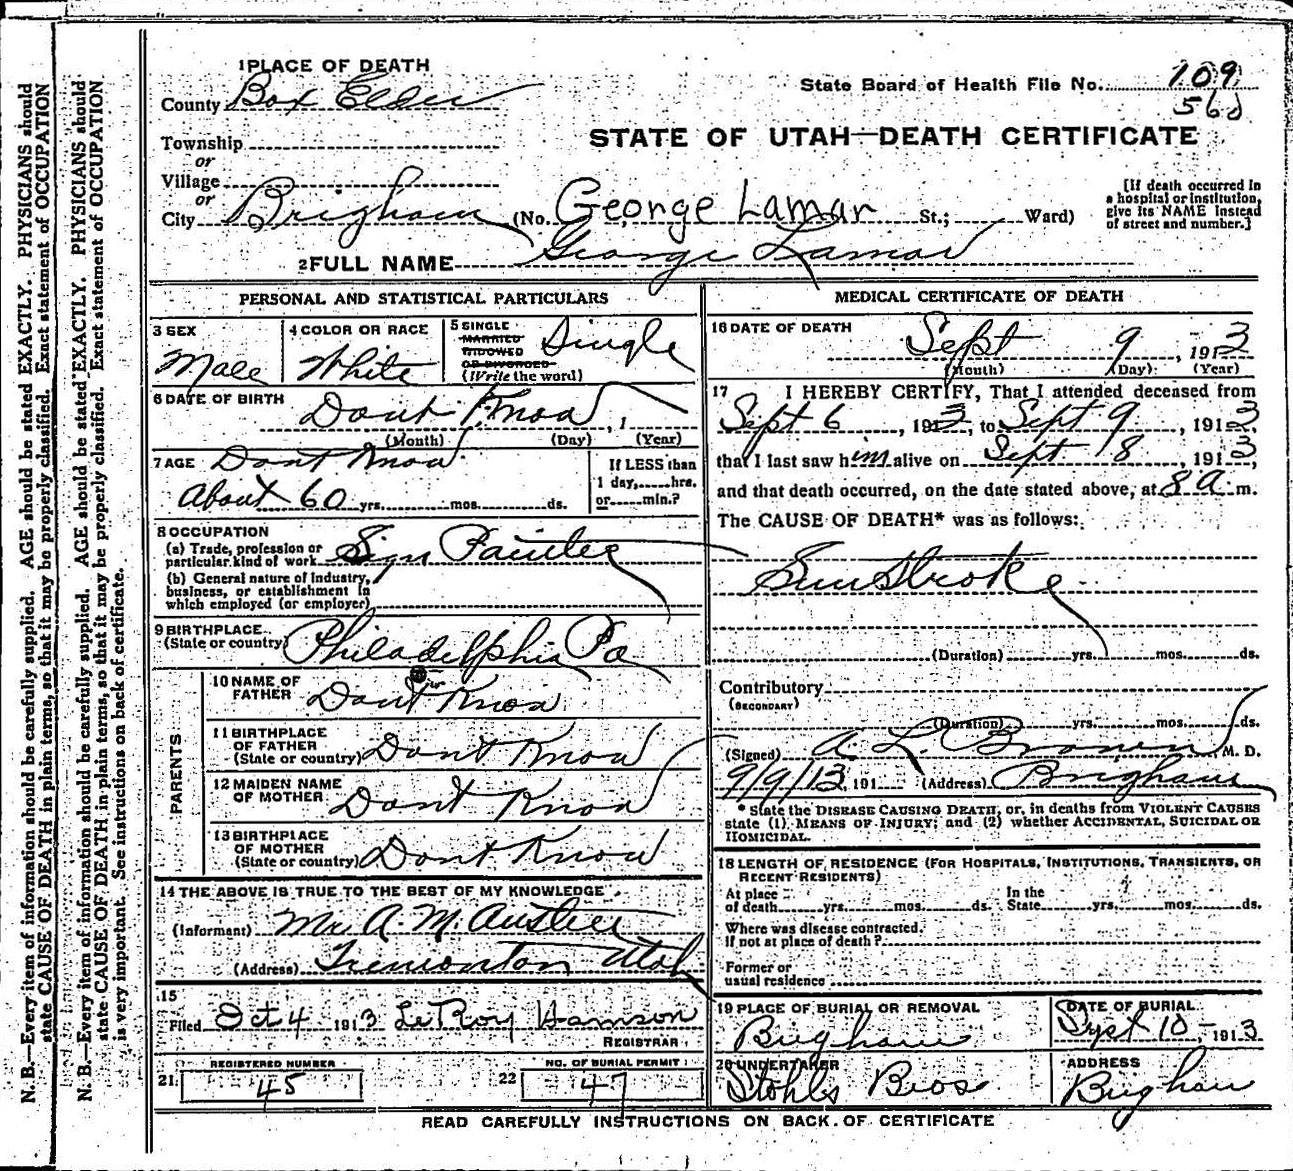 N. B.—Every item of information should be carefully supplied. AGE should be stated EXACTLY. PHYSICIANS should
state CAUSE OF DEATH in plain terms, so that it may be properly classified. Exact statement of OCCUPATION
N. B.—Every item of information should be carefully supplied. AGE should be stated EXACTLY. PHYSICIANS should
state CAUSE OF DEATH in plain terms, so that it may be properly classified. Exact statement of OCCUPATION
is very important. See instructions on back of certificate.
1 PLACE OF DEATH
County Box Elder
State Board of Health File No. 109
568
STATE OF UTAH—DEATH CERTIFICATE
Township
or
Village
or
City Brigham (No. George Lamar St.; Ward)
[If death occurred in
a hospital or institution,
give its NAME instead
of street and number.]
2 FULL NAME George Lamar
PERSONAL AND STATISTICAL PARTICULARS
3 SEX
Male
4 COLOR OR RACE
White
5 SINGLE
MARRIED
WIDOWED
OR DIVORCED
(Write the word)
Single
6 DATE OF BIRTH
Dont Know , 1
(Month) (Day) (Year)
7 AGE Dont Know
About 60 yrs. mos. ds.
If LESS than
1 day, hrs.
or min.?
8 OCCUPATION
(a) Trade, profession or
particular kind of work Sign Painter
(b) General nature of Industry,
business, or establishment in
which employed (or employer)
9 BIRTHPLACE
(State or country) Philadelphia Pa
PARENTS
10 NAME OF
FATHER Dont Know
11 BIRTHPLACE
OF FATHER
(State or country) Dont Know
12 MAIDEN NAME
OF MOTHER Dont Know
13 BIRTHPLACE
OF MOTHER
(State or country) Dont Know
14 THE ABOVE IS TRUE TO THE BEST OF MY KNOWLEDGE
(Informant) Mr A. M. Austin
(Address) Tremonton Utah
15
Filed Oct 4 1913 LeRoy Hamson
REGISTRAR
21 REGISTERED NUMBER
45
22 NO. OF BURIAL PERMIT
47
MEDICAL CERTIFICATE OF DEATH
16 DATE OF DEATH
Sept 9 , 1913
(Month) (Day) (Year)
17 I HEREBY CERTIFY, That I attended deceased from
Sept 6 , 1913, to Sept 9 , 1913,
that I last saw him alive on Sept 8 , 1913,
and that death occurred, on the date stated above, at 8 a m.
The CAUSE OF DEATH* was as follows:
Sun Stroke
(Duration) yrs. mos. ds.
Contributory
(SECONDARY)
(Duration) yrs. mos. ds.
(Signed) A. L. Brown M. D.
9/9/13, 191 (Address) Brigham
* State the DISEASE CAUSING DEATH, or, in deaths from VIOLENT CAUSES
state (1) MEANS OF INJURY; and (2) whether ACCIDENTAL, SUICIDAL OR
HOMICIDAL.
18 LENGTH OF RESIDENCE (FOR HOSPITALS, INSTITUTIONS, TRANSIENTS, OR
RECENT RESIDENTS)
At place
of death yrs. mos. ds.
In the
State yrs. mos. ds.
Where was disease contracted,
if not at place of death?
Former or
usual residence
19 PLACE OF BURIAL OR REMOVAL
Brigham
DATE OF BURIAL
Sept 10 , 1913
20 UNDERTAKER
Stohls Bros
ADDRESS
Brigham
READ CAREFULLY INSTRUCTIONS ON BACK OF CERTIFICATE